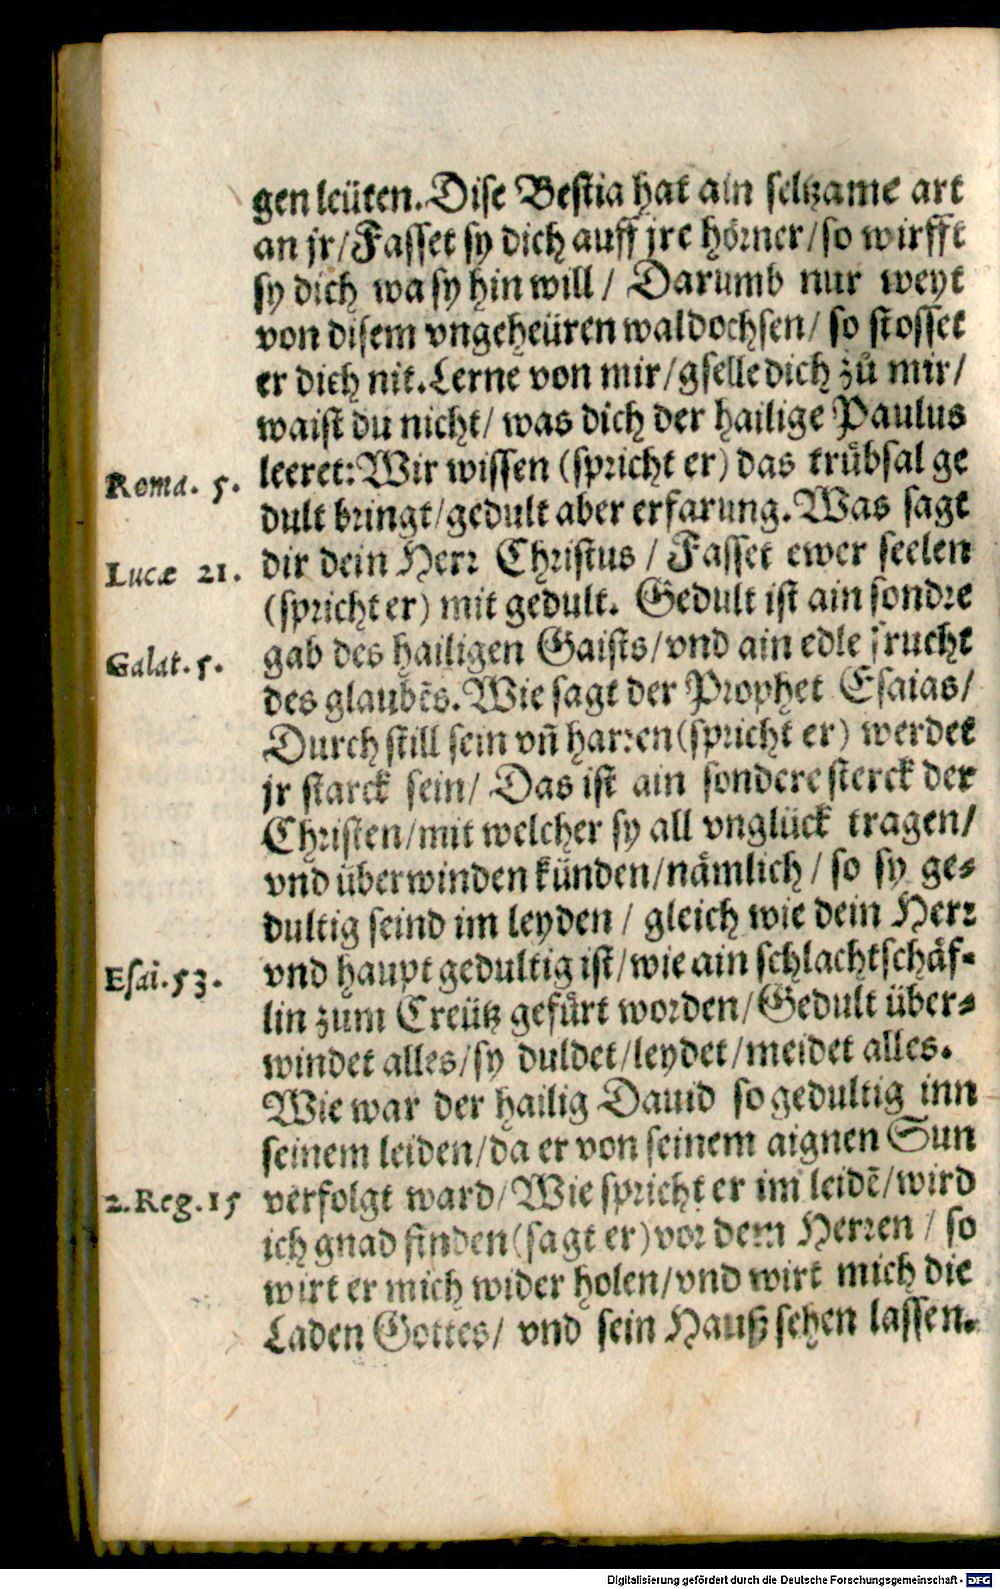 gen leüten. Dise Bestia hat ain seltzame art
an jr/ Fasset sy dich auff jre hörner/ so wirfft
sy dich wa sy hin will/ Darumb nur weyt
von disem vngeheüren waldochsen/ so stosset
er dich nit. Lerne von mir/ gselle dich zů mir/
waist du nicht/ was dich der hailige Paulus
Roma. 5. leeret: Wir wissen (spricht er) das trübsal ge
dult bringt/ gedult aber erfarung. Was sagt
Lucæ 21. dir dein Herr Christus/ Fasset ewer seelen
(spricht er) mit gedult. Gedult ist ain sondre
Galat. 5. gab des hailigen Gaists/ vnd ain edle frucht
des glaubēs. Wie sagt der Prophet Esaias/
Durch still sein vñ harren (spricht er) werdet
jr starck sein/ Das ist ain sondere sterck der
Christen/ mit welcher sy all vnglück tragen/
vnd überwinden künden/ nämlich/ so sy ge-
dultig seind im leyden/ gleich wie dein Herr
Esai. 53. vnd haupt gedultig ist/ wie ain schlachtschäf-
lin zum Creütz gefürt worden/ Gedult über-
windet alles/ sy duldet/ leydet/ meidet alles.
Wie war der hailig Dauid so gedultig inn
seinem leiden/ da er von seinem aignen Sun
2. Reg. 15 verfolgt ward/ Wie spricht er im leidē/ wird
ich gnad finden (sagt er) vor dem Herren/ so
wirt er mich wider holen/ vnd wirt mich die
Laden Gottes/ vnd sein Hauß sehen lassen.
Digitalisierung gefördert durch die Deutsche Forschungsgemeinschaft - DFG